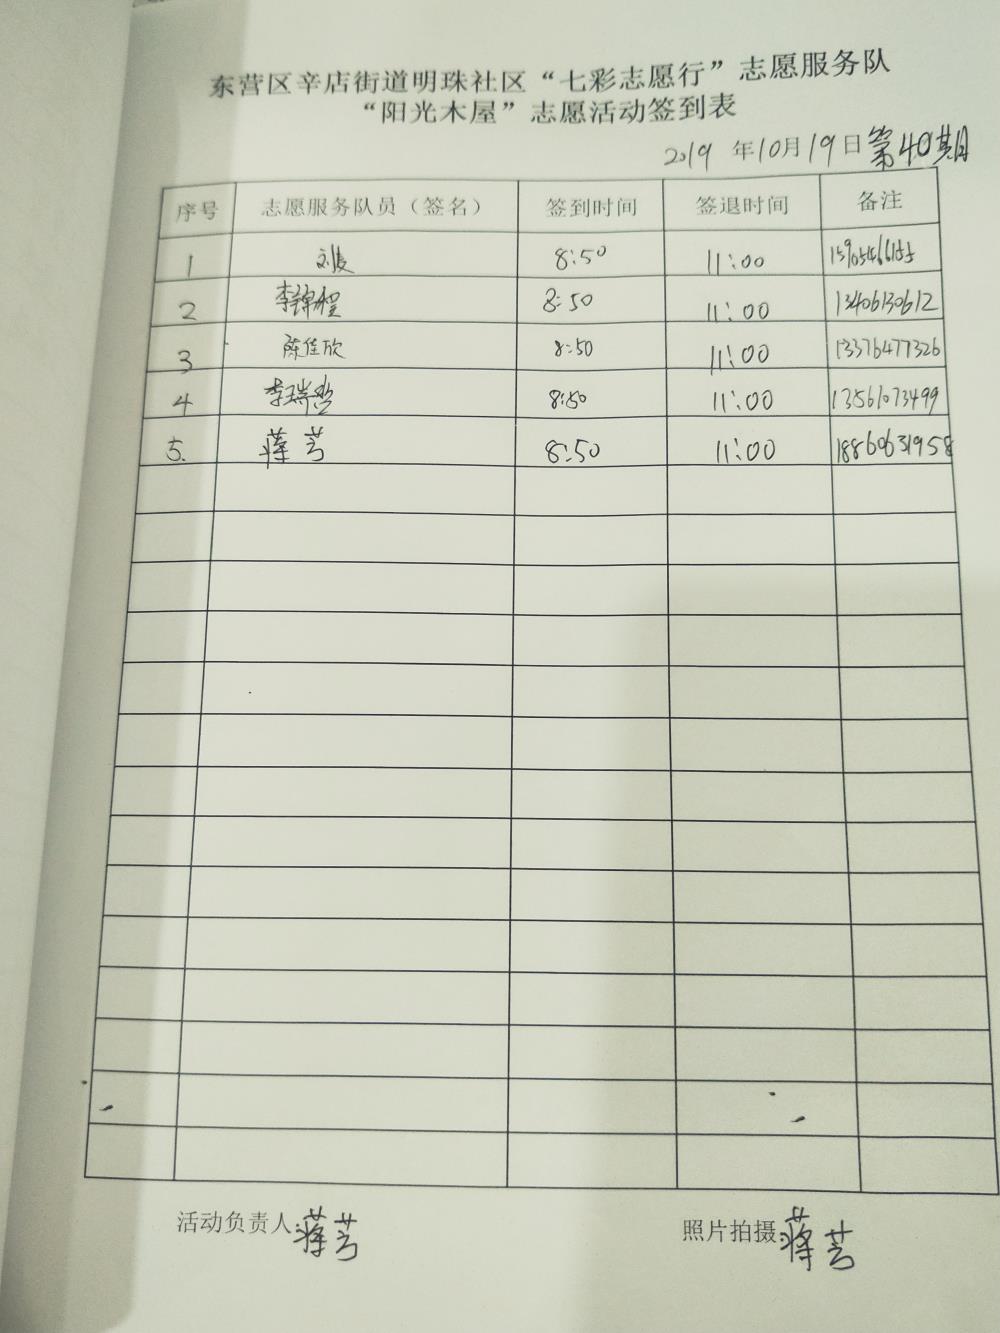 东营区辛店街道明珠社区“七彩志愿行”志愿服务队
“阳光木屋”志愿活动签到表
2019 年10月19日 第40期
序号 志愿服务队员（签名） 签到时间 签退时间 备注
1 8:50 11:00
2 李锦程 8:50 11:00 13406130612
3 陈佳欣 8:50 11:00 13376477326
4 李瑞哲 8:50 11:00 13561073499
5. 蒋芸 8:50 11:00 18860631958
活动负责人:蒋芸 照片拍摄:蒋芸